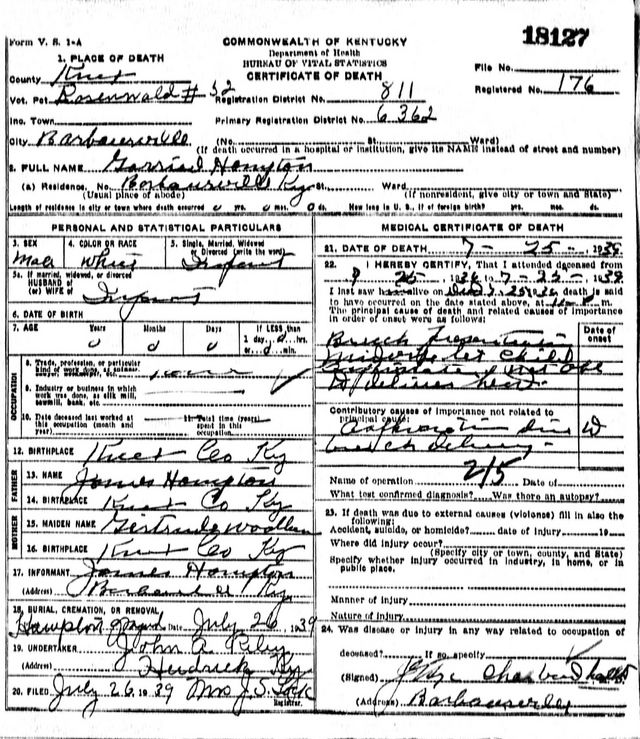 18127
Form V. S. 1-A
COMMONWEALTH OF KENTUCKY
Department of Health
BUREAU OF VITAL STATISTICS
CERTIFICATE OF DEATH
1. PLACE OF DEATH
File No.
County Knox
Registered No. 176
Vot. Pct. Rosenwald # 32
Registration District No. 811
Inc. Town
Primary Registration District No. 6362
City Barbourville (No. St. Ward)
(If death occurred in a hospital or institution, give its NAME instead of street and number)
2. FULL NAME Hampton
(a) Residence, No. Barbourville Ky St. Ward
(Usual place of abode) (If nonresident, give city or town and State)
Length of residence in city or town where death occurred 0 yrs. 0 mos. 0 ds. How long in U. S., if of foreign birth? yrs. mos. ds.
PERSONAL AND STATISTICAL PARTICULARS
3. SEX 4. COLOR OR RACE 5. Single, Married, Widowed
Divorced (write the word)
Male White Infant
5a. If married, widowed, or divorced
HUSBAND of
(or) WIFE of Infant
6. DATE OF BIRTH
7. AGE Years Months Days If LESS than
0 0 0 1 day, 0 hrs.
or 0 min.
OCCUPATION
8. Trade, profession, or particular
kind of work done, as spinner,
sawyer, bookkeeper, etc.
9. Industry or business in which
work was done, as silk mill,
sawmill, bank, etc.
10. Date deceased last worked at
this occupation (month and
year)
11. Total time (years)
spent in this
occupation
12. BIRTHPLACE Knox Co Ky
FATHER
13. NAME James Hampton
14. BIRTHPLACE Knox Co Ky
MOTHER
15. MAIDEN NAME Gertrude
16. BIRTHPLACE Knox Co Ky
17. INFORMANT James Hampton
(Address) Barbourville Ky
18. BURIAL, CREMATION, OR REMOVAL
Hampton Date July 26 1939
19. UNDERTAKER John A. Riley
(Address) Hedrick Ky
20. FILED July 26 1939 Mrs J. S.
Registrar.
MEDICAL CERTIFICATE OF DEATH
21. DATE OF DEATH 7 - 25 - 1939
22. I HEREBY CERTIFY, That I attended deceased from
7 - 25 - 1939
I last saw h alive on death is said
to have occurred on the date stated above, at m.
The principal cause of death and related causes of importance
in order of onset were as follows:
Date of
onset
Breech presentation
midwife let child
not able
to deliver head
Contributory causes of importance not related to
principal cause:
due to
breech delivery
215
Name of operation Date of
What test confirmed diagnosis? Was there an autopsy?
23. If death was due to external causes (violence) fill in also the
following:
Accident, suicide, or homicide? date of injury 19
Where did injury occur?
(Specify city or town, county, and State)
Specify whether injury occurred in industry, in home, or in
public place.
Manner of injury
Nature of injury
24. Was disease or injury in any way related to occupation of
deceased? If so, specify
(Signed)
(Address) Barbourville